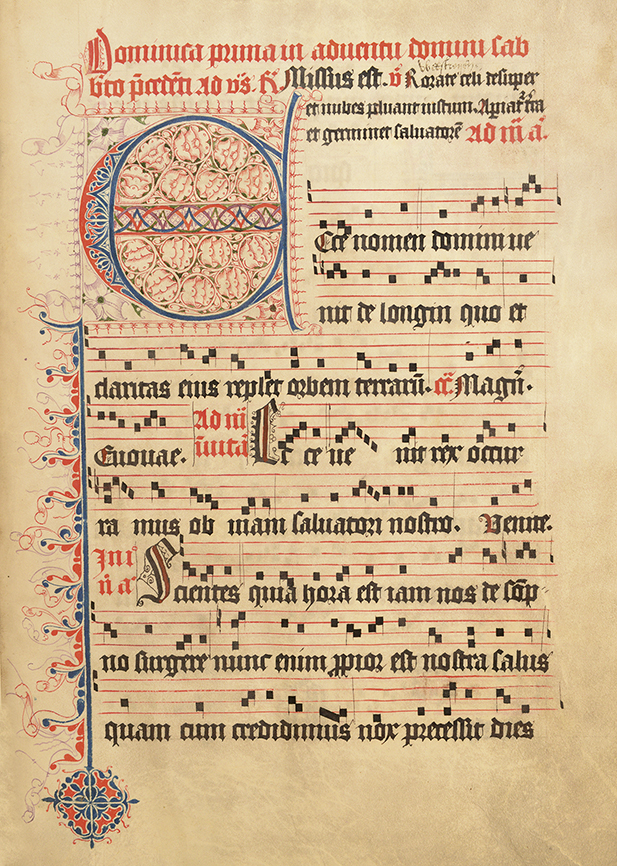 Dominica prima in adventu domini sab
bto p̄cedēti ad vs̄. R̄. Missus est. v̄ Rorate celi desuper
et nubes pluant iustum. Apiat̄ tr̄a
et germinet salvatorē Ad m̄ a.
Ecce nomen domini ve
nit de longin quo et
claritas eius replet orbem terrarū. cā. Magn̄.
Euouae. Ad m̄ Ec ce ve nit rex occur
īuitā
ra mus ob viam salvatori nostro. Venite.
In i
n̄ a Scientes quia hora est iam nos de sōp
no surgere nunc enim ꝓpior est nostra salus
quam cum credidimus nox precessit dies